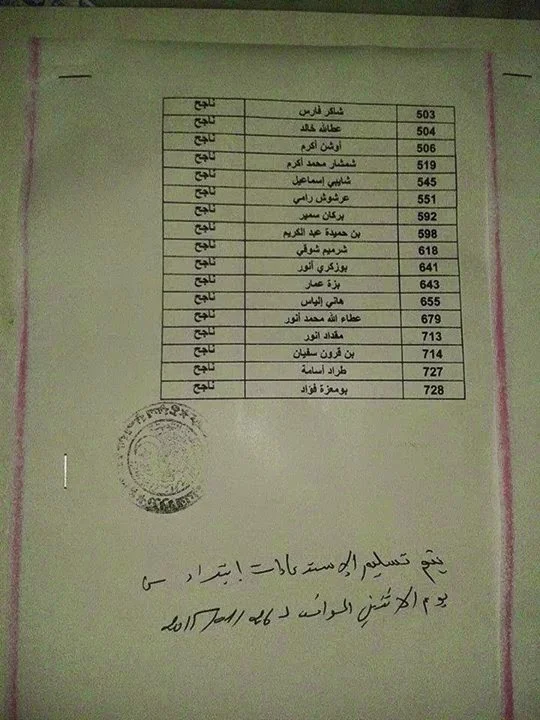 503 شاكر فارس ناجح
504 عطالله خالد ناجح
506 أوشن أكرم ناجح
519 شمشار محمد أكرم ناجح
545 شايبي إسماعيل ناجح
551 عرشوش رامي ناجح
592 بركان سمير ناجح
598 بن حميدة عبد الكريم ناجح
618 شرميم شوقي ناجح
641 بوزكري أنور ناجح
643 بزة عمار ناجح
655 هاني إلياس ناجح
679 عطاء الله محمد أنور ناجح
713 مقداد انور ناجح
714 بن قرون سفيان ناجح
727 طراد أسامة ناجح
728 بومعزة فؤاد ناجح
يتم تسليم الإستدعاءات إبتداء من
يوم الاثنين الموافق لـ